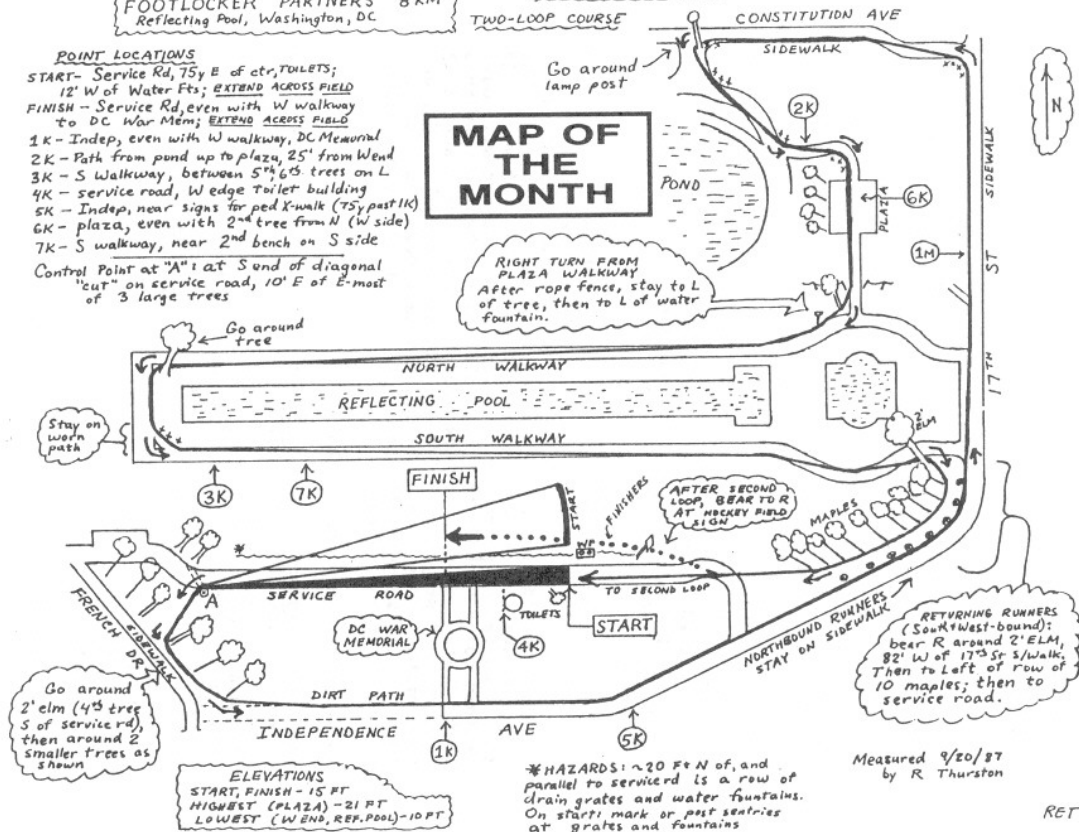 FOOTLOCKER PARTNERS 8KM
Reflecting Pool, Washington, DC
TWO-LOOP COURSE
CONSTITUTION AVE
SIDEWALK
POINT LOCATIONS
START- Service Rd, 75y E of ctr, TOILETS;
12' W of Water Fts; EXTEND ACROSS FIELD
FINISH - Service Rd, even with W walkway
to DC War Mem; EXTEND ACROSS FIELD
1K - Indep, even with W walkway, DC Memorial
2K - Path from pond up to plaza, 25' from W end
3K - S Walkway, between 5th, 6th trees on L
4K - service road, W edge toilet building
5K - Indep, near signs for ped X-walk (75y past 1K)
6K - plaza, even with 2nd tree from N (W side)
7K - S walkway, near 2nd bench on S side
Control Point at "A": at S end of diagonal
"cut" on service road, 10' E of E-most
of 3 large trees
Go around
lamp post
MAP OF
THE
MONTH
N
2K
POND
PLAZA
6K
SIDEWALK
1M
ST
17TH
RIGHT TURN FROM
PLAZA WALKWAY
After rope fence, stay to L
of tree, then to L of water
fountain.
Go around
tree
NORTH WALKWAY
REFLECTING POOL
SOUTH WALKWAY
Stay on
worn
path
2' ELM
3K
7K
FINISH
START
FINISHERS
AFTER SECOND
LOOP, BEAR TO R
AT HOCKEY FIELD
SIGN
MAPLES
*
WF
A
SERVICE ROAD
TO SECOND LOOP
TOILETS
START
DC WAR
MEMORIAL
4K
FRENCH DR
SIDEWALK
NORTHBOUND RUNNERS
STAY ON SIDEWALK
RETURNING RUNNERS
(South & West-bound):
bear R around 2' ELM,
82' W of 17th St S/Walk,
Then to Left of row of
10 maples; then to
service road.
Go around
2' elm (4th tree
S of service rd),
then around 2
smaller trees as
shown
DIRT PATH
INDEPENDENCE AVE
1K
5K
ELEVATIONS
START, FINISH - 15 FT
HIGHEST (PLAZA) - 21 FT
LOWEST (W END, REF. POOL) - 10 FT
*HAZARDS: ~20 Ft N of, and
parallel to service rd is a row of
drain grates and water fountains.
On start: mark or post sentries
at grates and fountains
Measured 9/20/87
by R Thurston
RET